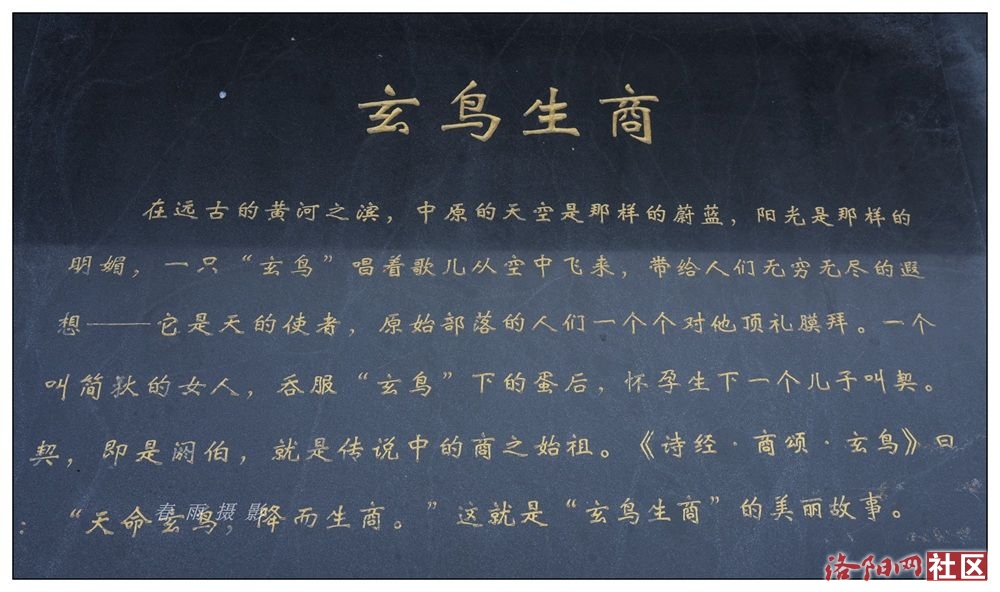 玄鸟生商
在远古的黄河之滨，中原的天空是那样的蔚蓝，阳光是那样的
明媚，一只“玄鸟”唱着歌儿从空中飞来，带给人们无穷无尽的遐
想——它是天的使者，原始部落的人们一个个对他顶礼膜拜。一个
叫简狄的女人，吞服“玄鸟”下的蛋后，怀孕生下一个儿子叫契。
契，即是阏伯，就是传说中的商之始祖。《诗经·商颂·玄鸟》曰
：“天命玄鸟，降而生商。”这就是“玄鸟生商”的美丽故事。
春雨摄影
洛阳网社区